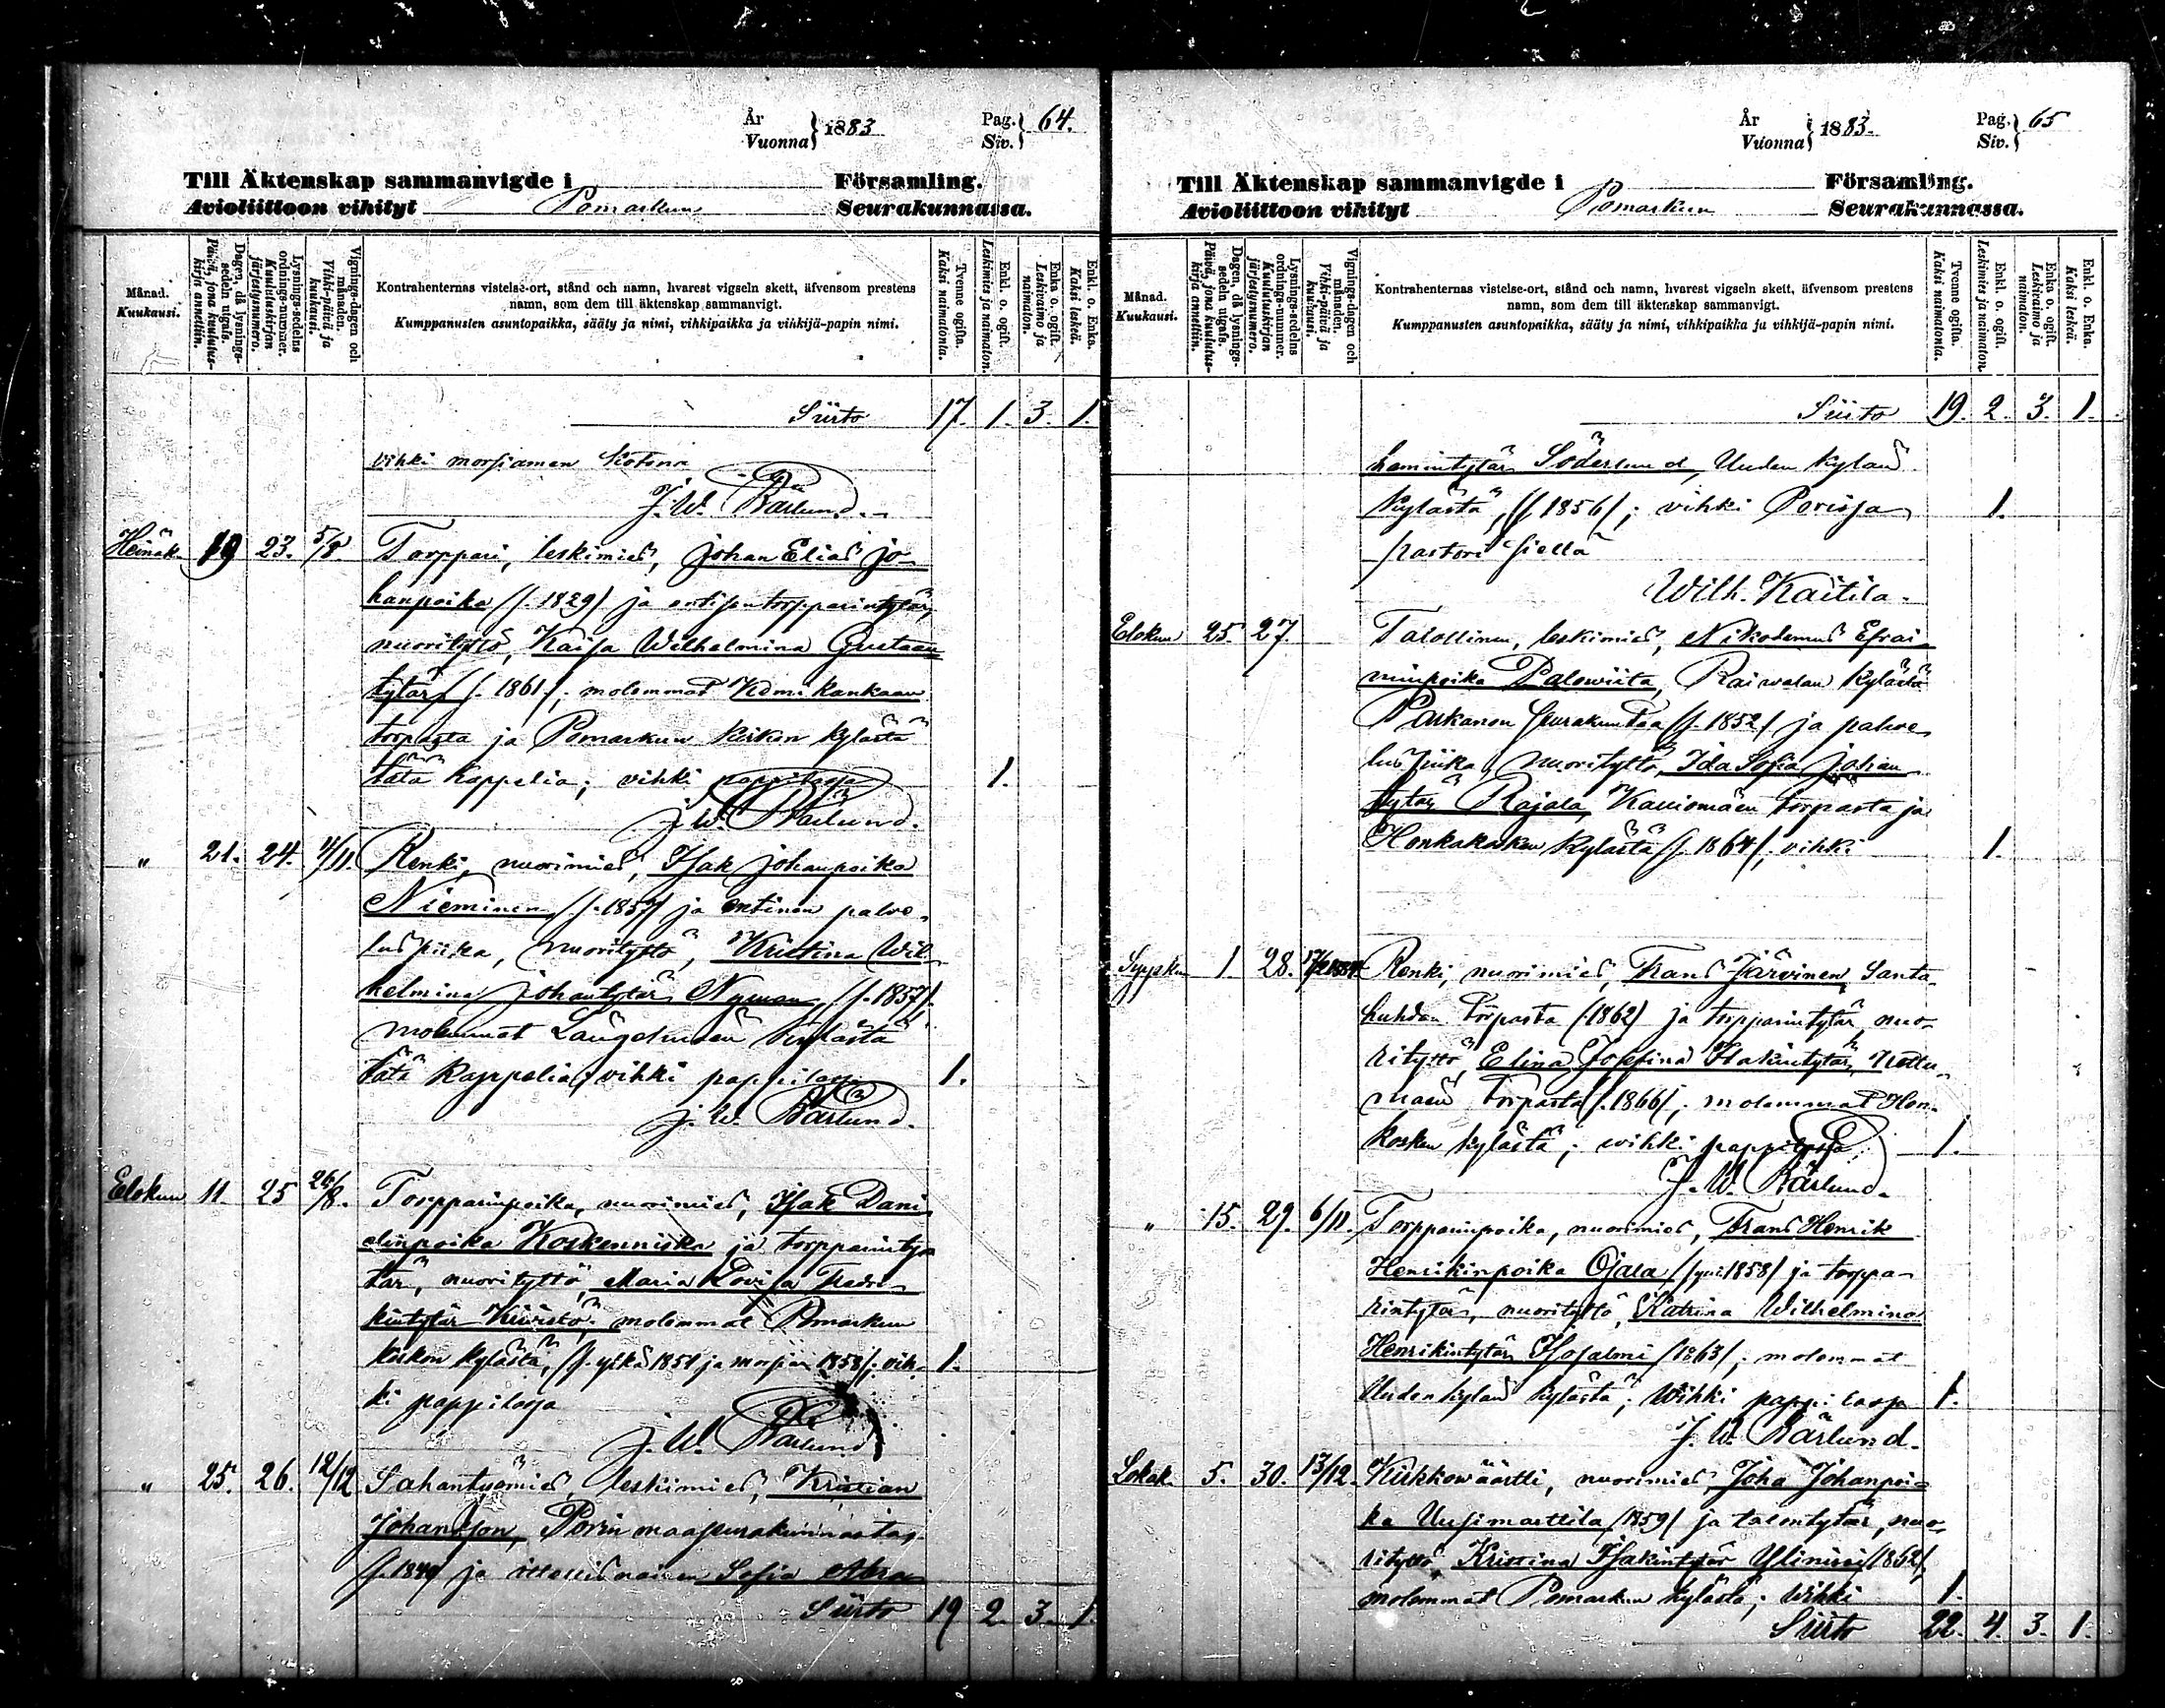 År
Vuonna } 1883
Pag.
Siv. } 64.
Till Äktenskap sammanvigde i Församling.
Avioliittoon vihityt Pomarkun Seurakunnassa.
Månad.
Kuukausi.
Dagen, då lysnings-sedeln utgafs.
Päivä, jona kuulutus-kirja annettiin.
Lysnings-sedelns ordnings-nummer.
Kuulutuskirjan järjestysnumero.
Vignings-dagen och månaden.
Vihki-päivä ja kuukausi.
Kontrahenternas vistelse-ort, stånd och namn, hvarest vigseln skett, äfvensom prestens
namn, som dem till äktenskap sammanvigt.
Kumppanusten asuntopaikka, sääty ja nimi, vihkipaikka ja vihkijä-papin nimi.
Tvenne ogifta.
Kaksi naimatonta.
Enkl. o. ogift.
Leskimies ja naimaton.
Enka o. ogift.
Leskivaimo ja naimaton.
Enkl. o. Enka.
Kaksi leskeä.
Siirto 17. 1. 3. 1.
vihki morsiamen kotona
J. W. Bärlund.
Heinäk. 19 23. 5/8 Torppari, leskimies, Johan Elias Jo-
hanpoika (s. 1829) ja entisen torpparintytär,
nuorityttö, Kaisa Wilhelmina Gustaan
tytär (s. 1861); molemmat kankaan
torpasta ja Pomarkun kirkon kylästä
tätä kappelia; vihki pappilassa 1.
J. W. Bärlund.
" 21. 24. 4/11. Renki, nuorimies, Isak Johanpoika
Nieminen (s. 1857) ja entinen palve-
luspiika, nuorityttö, Kristina Wil-
helmina Johantytär Nyman, (s. 1857);
molemmat kylästä
tätä kappelia; vihki pappilassa 1.
J. W. Bärlund.
Elokuu 11. 25 26/8. Torpparinpoika, nuorimies, Isak Dani
elinpoika Koskenniska ja torpparinty-
tär, nuorityttö, Maria Lovisa Fredri-
kintytär molemmat Pomarkun
kirkon kylästä, (s. ylkä 1851 ja morsian 1858); vih- 1.
ki pappilassa
J. W. Bärlund
" 25. 26. 12/12 Sahantyömies, leskimies, Kristian
Johansson, Porin maaseurakunnasta,
ja Sofia Abra-
Siirto 19 2. 3. 1
År
Vuonna } 1883.
Pag.
Siv. } 65
Till Äktenskap sammanvigde i Församling.
Avioliittoon vihityt Pomarkun Seurakunnassa.
Månad.
Kuukausi.
Dagen, då lysnings-sedeln utgafs.
Päivä, jona kuulutus-kirja annettiin.
Lysnings-sedelns ordnings-nummer.
Kuulutuskirjan järjestysnumero.
Vignings-dagen och månaden.
Vihki-päivä ja kuukausi.
Kontrahenternas vistelse-ort, stånd och namn, hvarest vigseln skett, äfvensom prestens
namn, som dem till äktenskap sammanvigt.
Kumppanusten asuntopaikka, sääty ja nimi, vihkipaikka ja vihkijä-papin nimi.
Tvenne ogifta.
Kaksi naimatonta.
Enkl. o. ogift.
Leskimies ja naimaton.
Enka o. ogift.
Leskivaimo ja naimaton.
Enkl. o. Enka.
Kaksi leskeä.
Siirto 19. 2. 3. 1.
hamintytär Söderlund, Uuden kylän
kylästä, (s. 1856); vihki Porissa 1.
pastori siellä
Wilh. Kaitila.
Elokuu 25. 27. Talollinen, leskimies, Nikodemus Efrai-
minpoika Palowiita, Raiwalan kylästä
Parkanon seurakuntaa (s. 1852) ja palve
luspiika, nuorityttö, Ida Sofia Johan
tytär Rajala, Kalliomäen torpasta ja
Honkakosken kylästä (s. 1864); vihki 1.
Syysku 1. 28. Renki, nuorimies, Frans Järvinen, Santa-
huhdan torpasta (1862) ja torpparintytär, nuo-
rityttö, Elina Josefina Isakintytär,
torpasta (s. 1866); molemmat Hon-
kosken kylästä; wihki pappilassa 1.
J. W. Bärlund.
" 15. 29. 6/11. Torpparinpoika, nuorimies, Frans Henrik
Henrikinpoika Ojala (synt. 1858) ja torppa-
rintytär, nuorityttö, Katrina Wilhelmina
Henrikintytär Isosalmi (1863); molemmat
Uudenkylän kylästä; Wihki pappilassa 1.
J. W. Bärlund.
Lokak. 5. 30. 13/12. Kirkkowäärtti, nuorimies, Joha Johanpoi-
ka Uusimarttila (1859) ja talontytär, nuo-
rityttö, Kristina Isakintytär Ylinissi (1862),
molemmat Pomarkun kylästä; Wihki 1.
Siirto 22. 4. 3. 1.